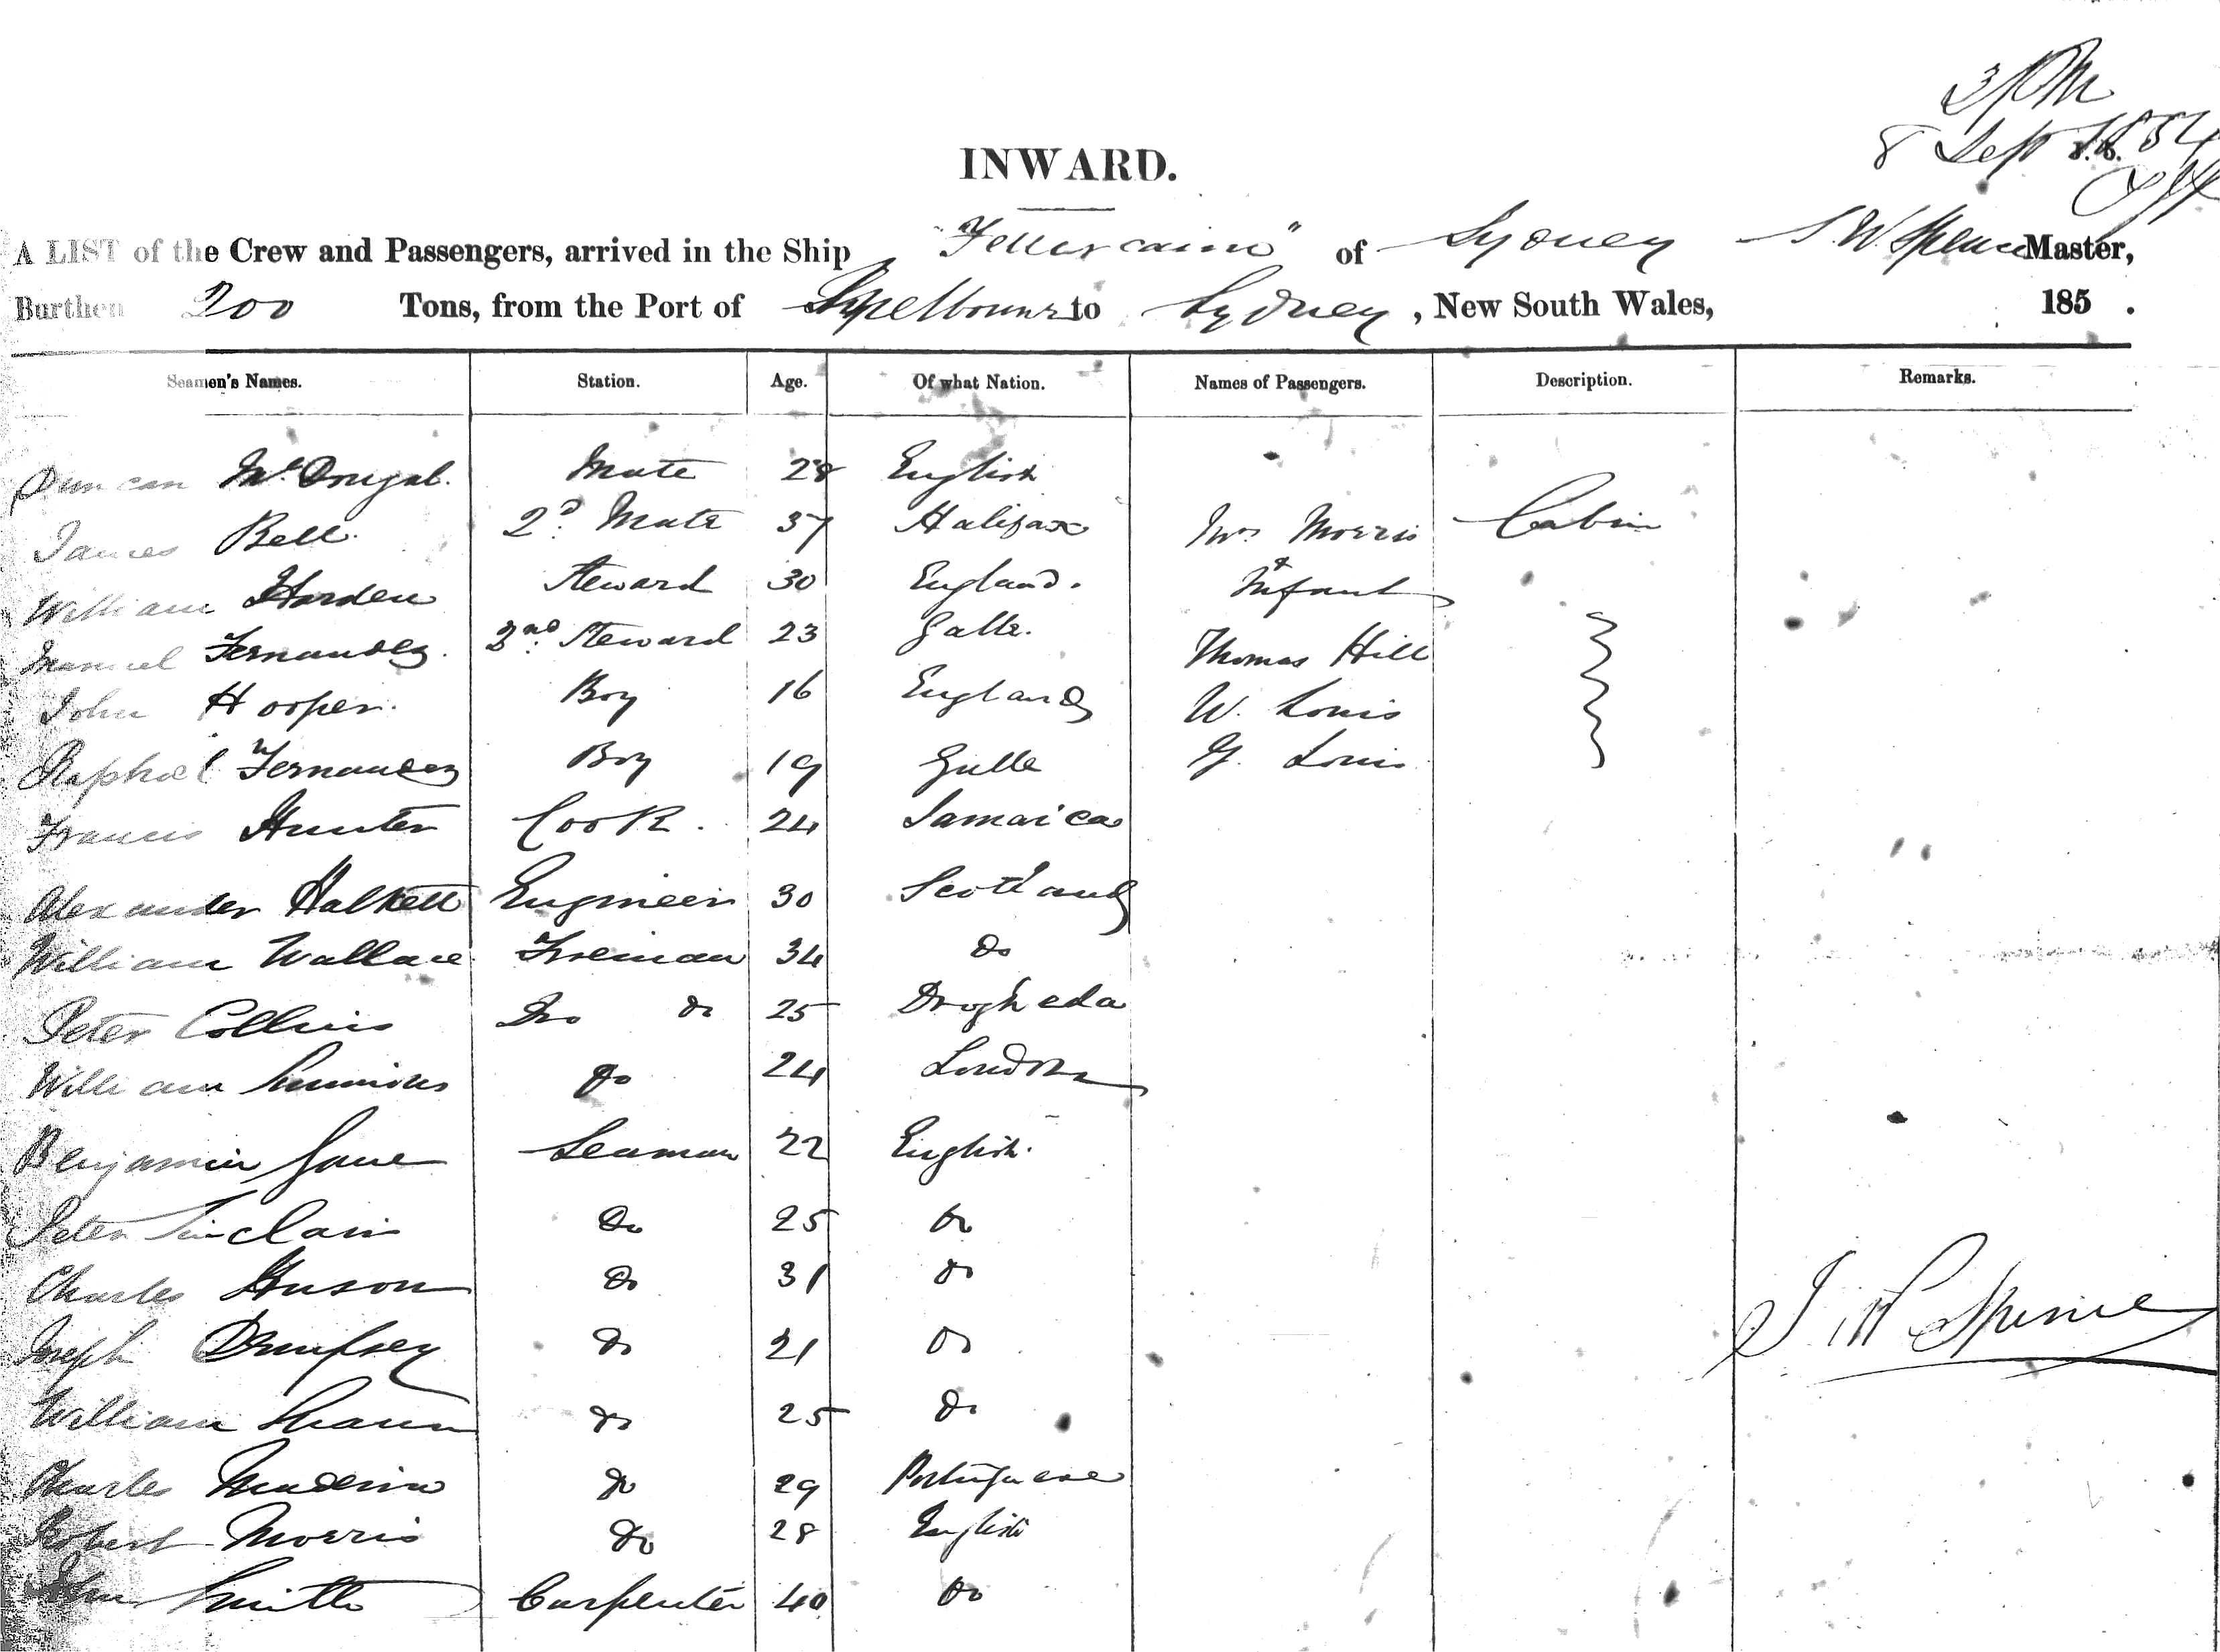 3 PM
8 Sept 1854
INWARD.
A LIST of the Crew and Passengers, arrived in the Ship "Fettercairn" of Sydney S. W. Spence Master,
Burthen 200 Tons, from the Port of Melbourne to Sydney, New South Wales, 185 .
Seamen's Names. Station. Age. Of what Nation. Names of Passengers. Description. Remarks.
Duncan McDougal. Mate 28 English
James Bell. 2d. Mate 37 Halifax Mrs Morris Cabin
William Harden Steward 30 England. & Infant
Manuel Fernandez. 2nd. Steward 23 Galle. Thomas Hill
John Hooper. Boy 16 England W. Louis
Raphael Fernandez Boy 19 Galle G. Louis
Francis Hunter Cook. 24 Jamaica
Alexander Halkett Engineer 30 Scotland
William Wallace Fireman 34 Do
Peter Collins Do do 25 Drogheda
William Do 24 London
Benjamin Seaman 22 English.
Peter Sinclair Do 25 Do
Charles Huson Do 31 Do
Joseph Dempsey Do 21 Do
J W Spence
William Do 25 Do
Charles Do 29 Portuguese
Robert Morris Do 28 English
John Smith Carpenter 40 Do